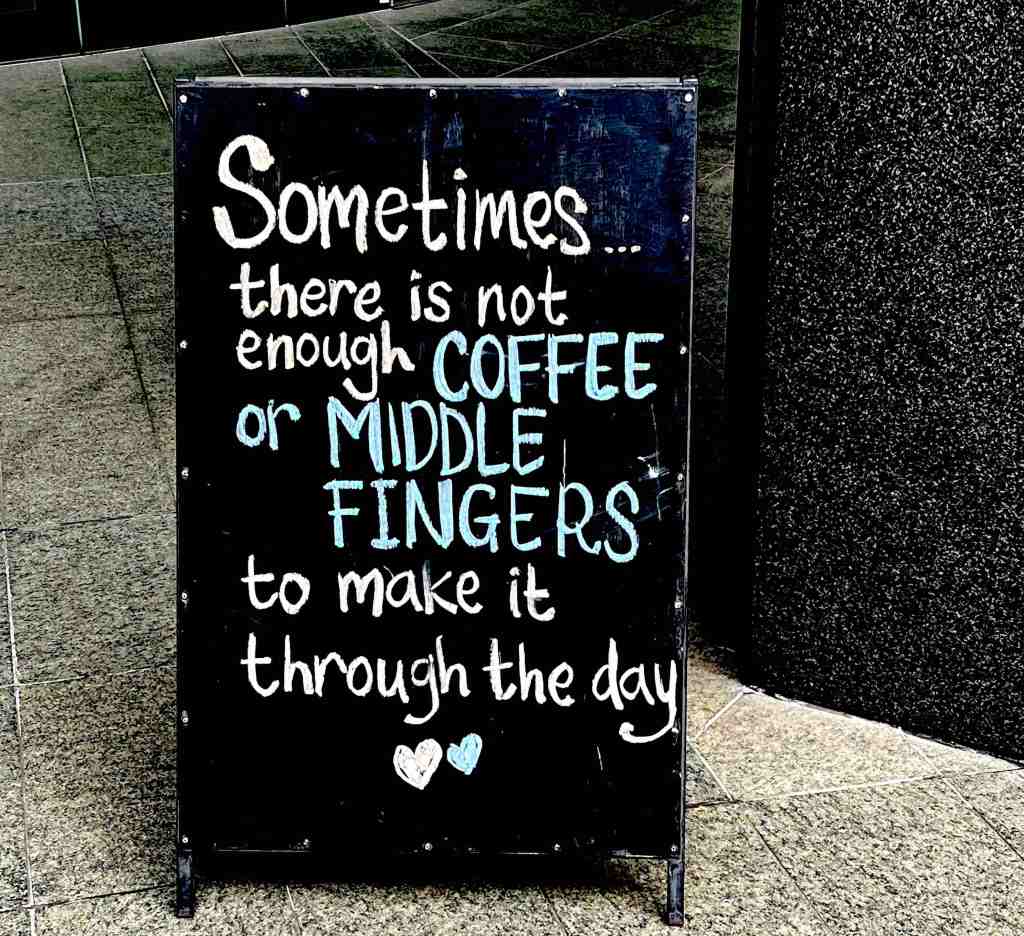 Sometimes...
there is not
enough COFFEE
or MIDDLE
FINGERS
to make it
through the day